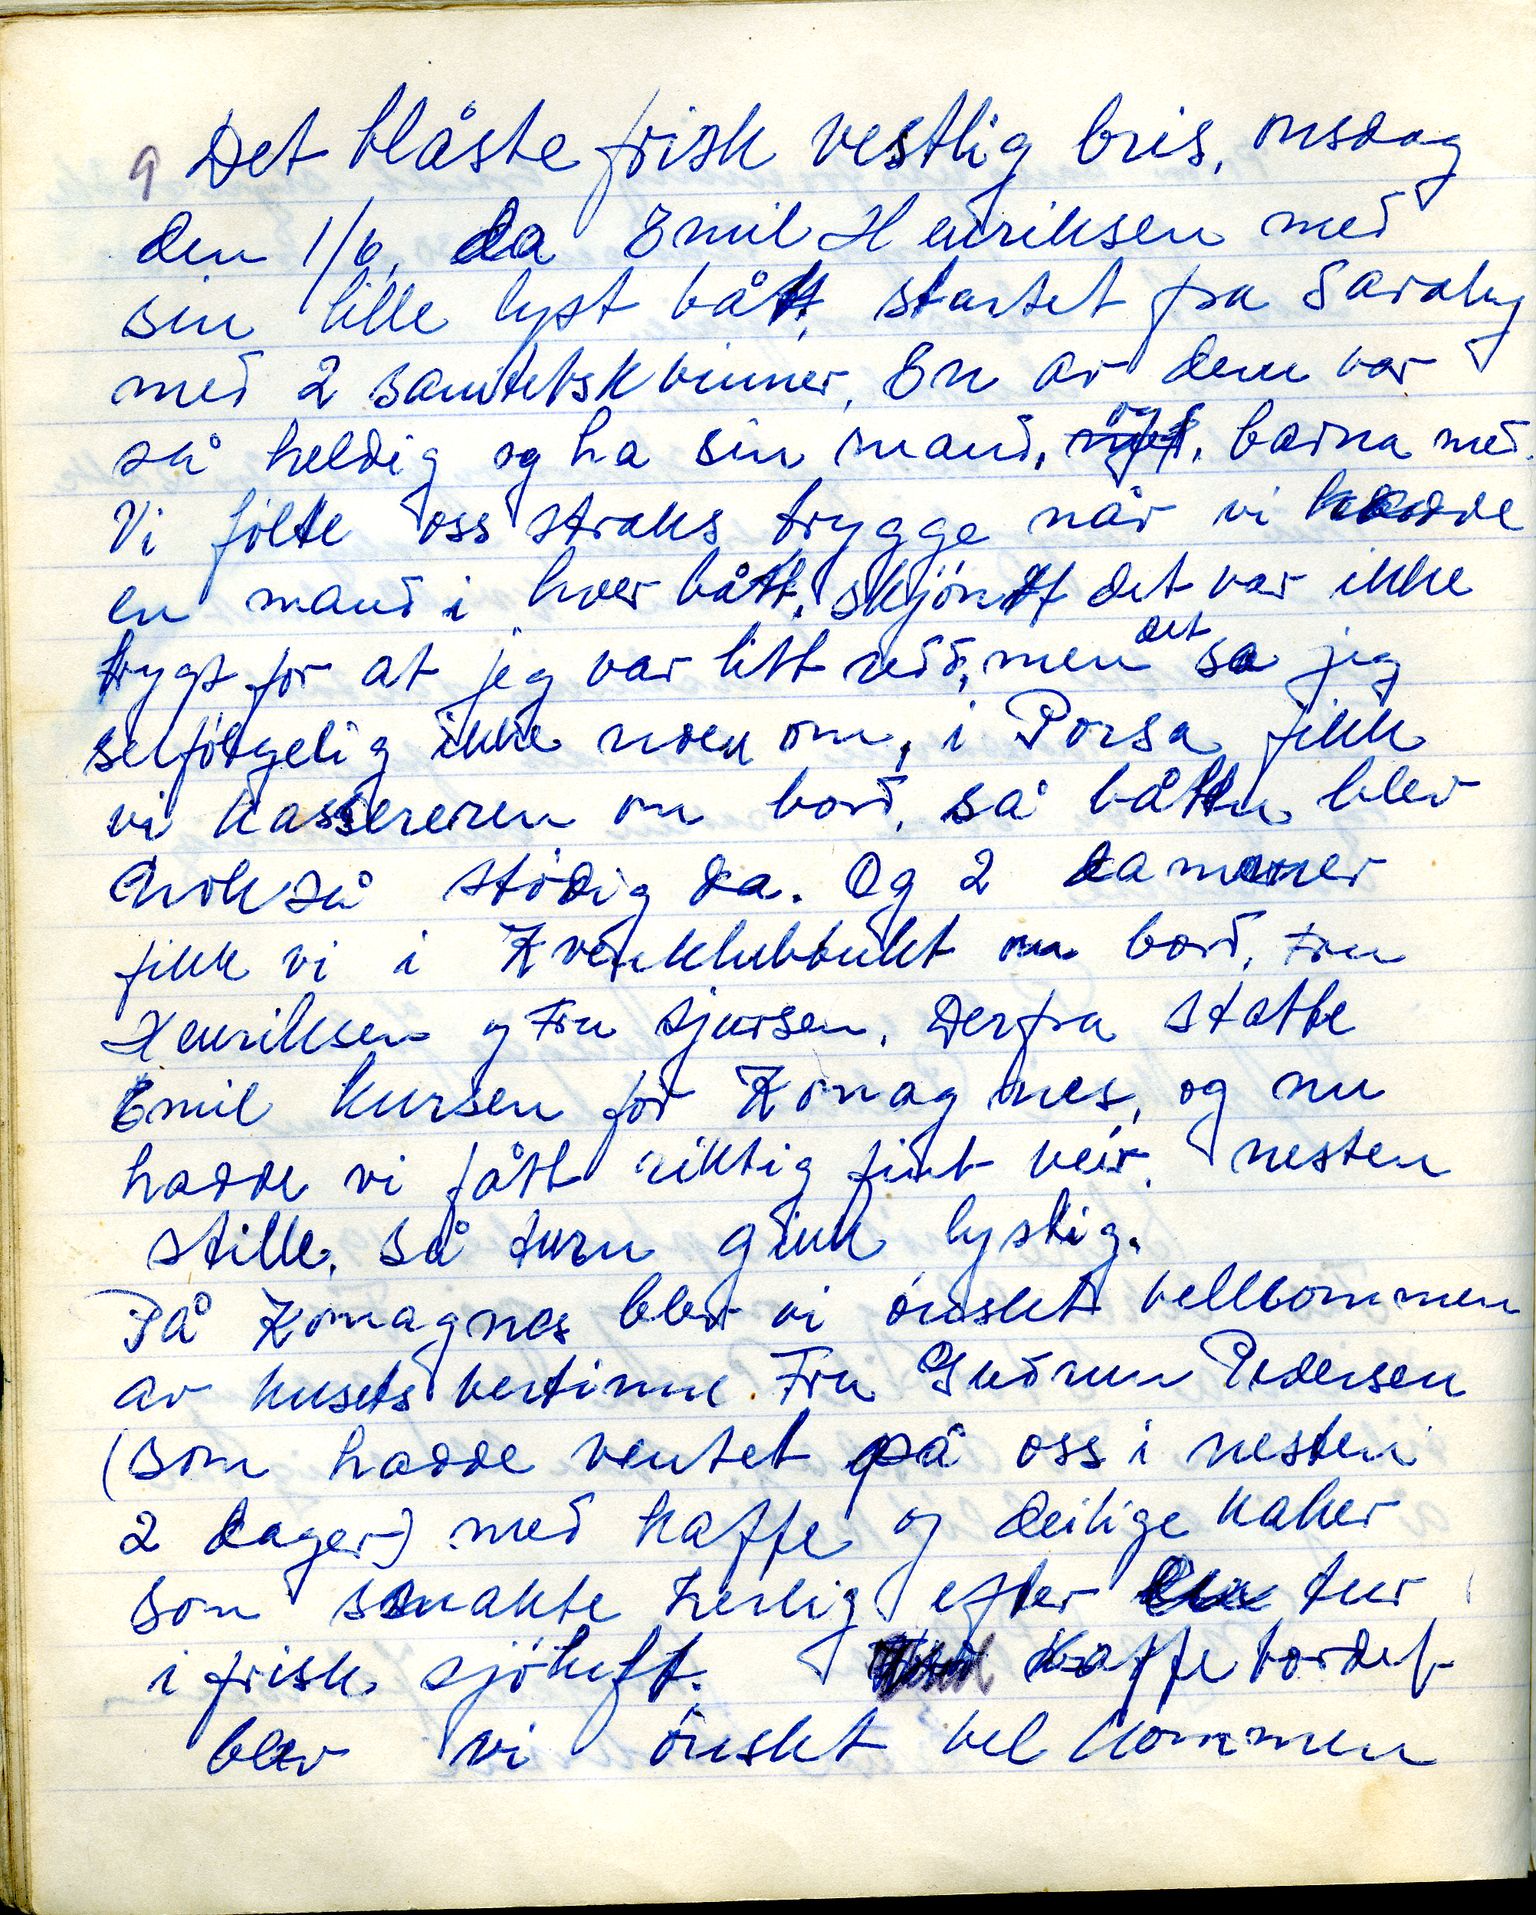 9 Det blåste frisk vestlig bris, onsdag
den 1/6, da Emil Henriksen med
sin lille lyst bått, startet fra Saraby
med 2 sanitetskvinner, En av dem var
så heldig og ha sin mand, og barna med.
Vi fölte oss straks trygge når vi hadde
en mand i hver bått, skjöntt det var ikke
trygt for at jeg var litt redd, men det sa jeg
selfölgelig ikke noen om, i Porsa fikk
vi kassereren om bord, så båtten blev
nokså stödig da. Og 2 dammer
fikk vi i Kvenklubbukt om bord, Fru
Henriksen og Fru Sjursen, Derfra statte
Emil kursen for Komagnes, og nu
hadde vi fått riktig fint veir, nesten
stille, så turn gikk lystig.
På Komagnes blev vi önsket vellkommen
av husets vertinne Fru Gudrun Pedersen
(som hadde ventet på oss i nesten
2 dager) med kaffe og deilige kaker
som smakte herlig efter tur
i frisk sjöluft. Kaffebordet
blev vi önsket vel kommen